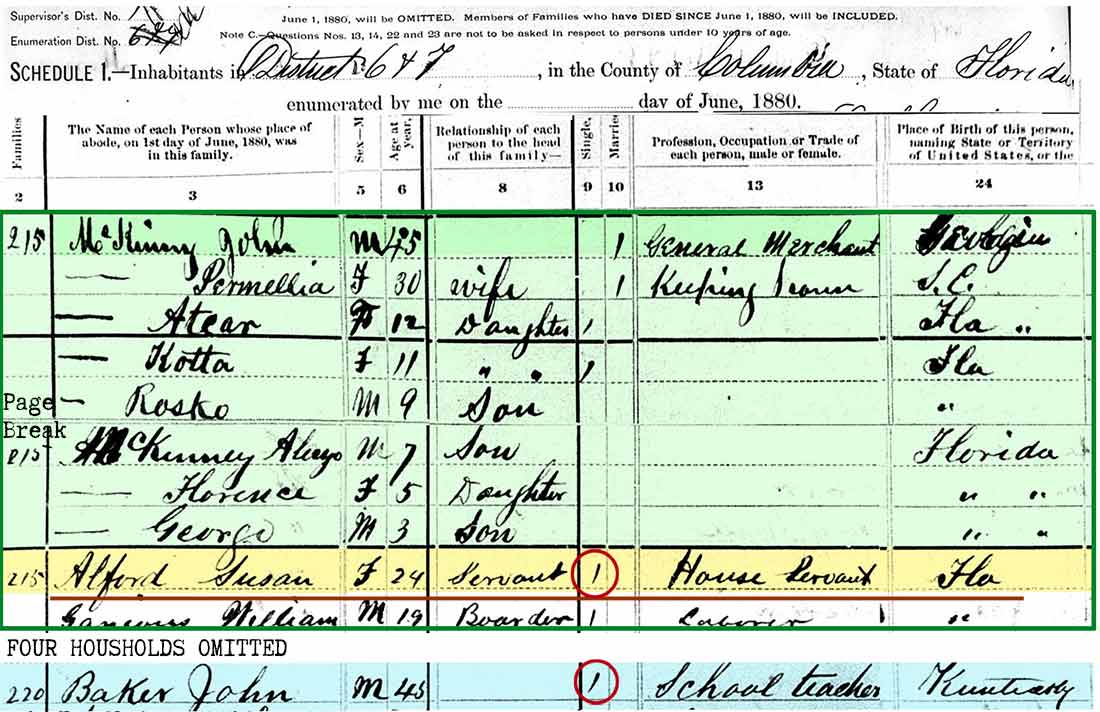 Supervisor's Dist. No.
June 1, 1880, will be OMITTED. Members of Families who have DIED SINCE June 1, 1880, will be INCLUDED.
Enumeration Dist. No.
Note C.—Questions Nos. 13, 14, 22 and 23 are not to be asked in respect to persons under 10 years of age.
SCHEDULE 1.—Inhabitants in District 647, in the County of Columbia, State of Florida
enumerated by me on the day of June, 1880.
Families
The Name of each Person whose place of abode, on 1st day of June, 1880, was in this family.
Sex—M
Age at year,
Relationship of each person to the head of this family—
Single,
Married
Profession, Occupation or Trade of each person, male or female.
Place of Birth of this person, naming State or Territory of United States, or the
2 3 5 6 8 9 10 13 24
215 McKinny John M 45 1 General Merchant Georgia
— Permellia F 30 wife 1 Keeping house S.C.
— Atear F 12 Daughter 1 Fla "
— Kotta F 11 " " 1 Fla
Page
— Rosko M 9 Son "
Break
215 McKinney Alezo M 7 Son Florida
— Florence F 5 Daughter " "
— George M 3 Son " "
215 Alford Susan F 24 Servant 1 House Servant Fla
William M 19 Boarder 1 Laborer "
FOUR HOUSHOLDS OMITTED
220 Baker John M 45 1 School teacher Kuntucky